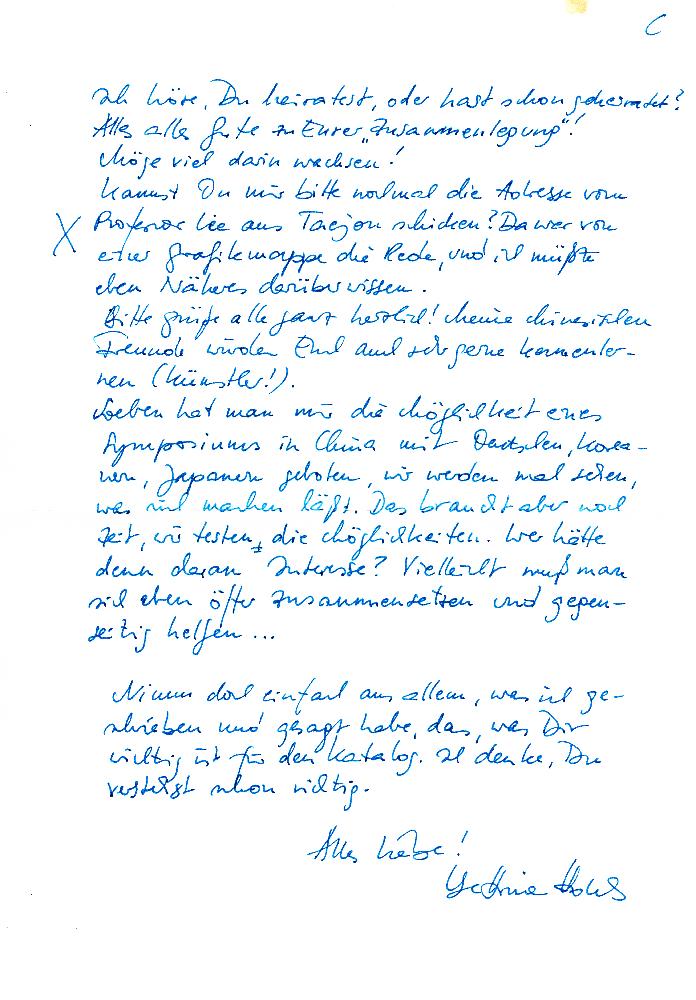 C
Ich höre, Du heiratest, oder hast schon geheiratet?
Alles alle Gute zu Eurer „Zusammenlegung“!
Möge viel darin wachsen!
Kannst Du mir bitte nochmal die Adresse vom
X Professor Lee aus Taejon schicken? Da war von
einer Grafikmappe die Rede, und ich müßte
eben Näheres darüber wissen.
Bitte grüße alle ganz herzlich! Meine chinesischen
Freunde würden Euch auch sehr gerne kennenler-
nen (Künstler!).
Soeben hat man mir die Möglichkeit eines
Symposiums in China mit Deutschen, Korea-
nern, Japanern geboten, wir werden mal sehen,
was sich machen läßt. Das braucht aber noch
Zeit, wir testen die Möglichkeiten. Wer hätte
denn daran Interesse? Vielleicht muß man
sich eben öfter zusammensetzen und gegen-
seitig helfen ...
Nimm doch einfach aus allem, was ich ge-
schrieben und gesagt habe, das, was Dir
wichtig ist für den Katalog. Ich denke, Du
verstehst schon richtig.
Alles Liebe!